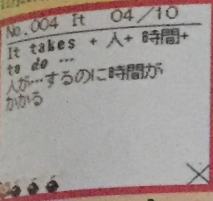 No.004 It 04/10
It takes + 人+ 時間+
to do …
人が…するのに時間が
かかる